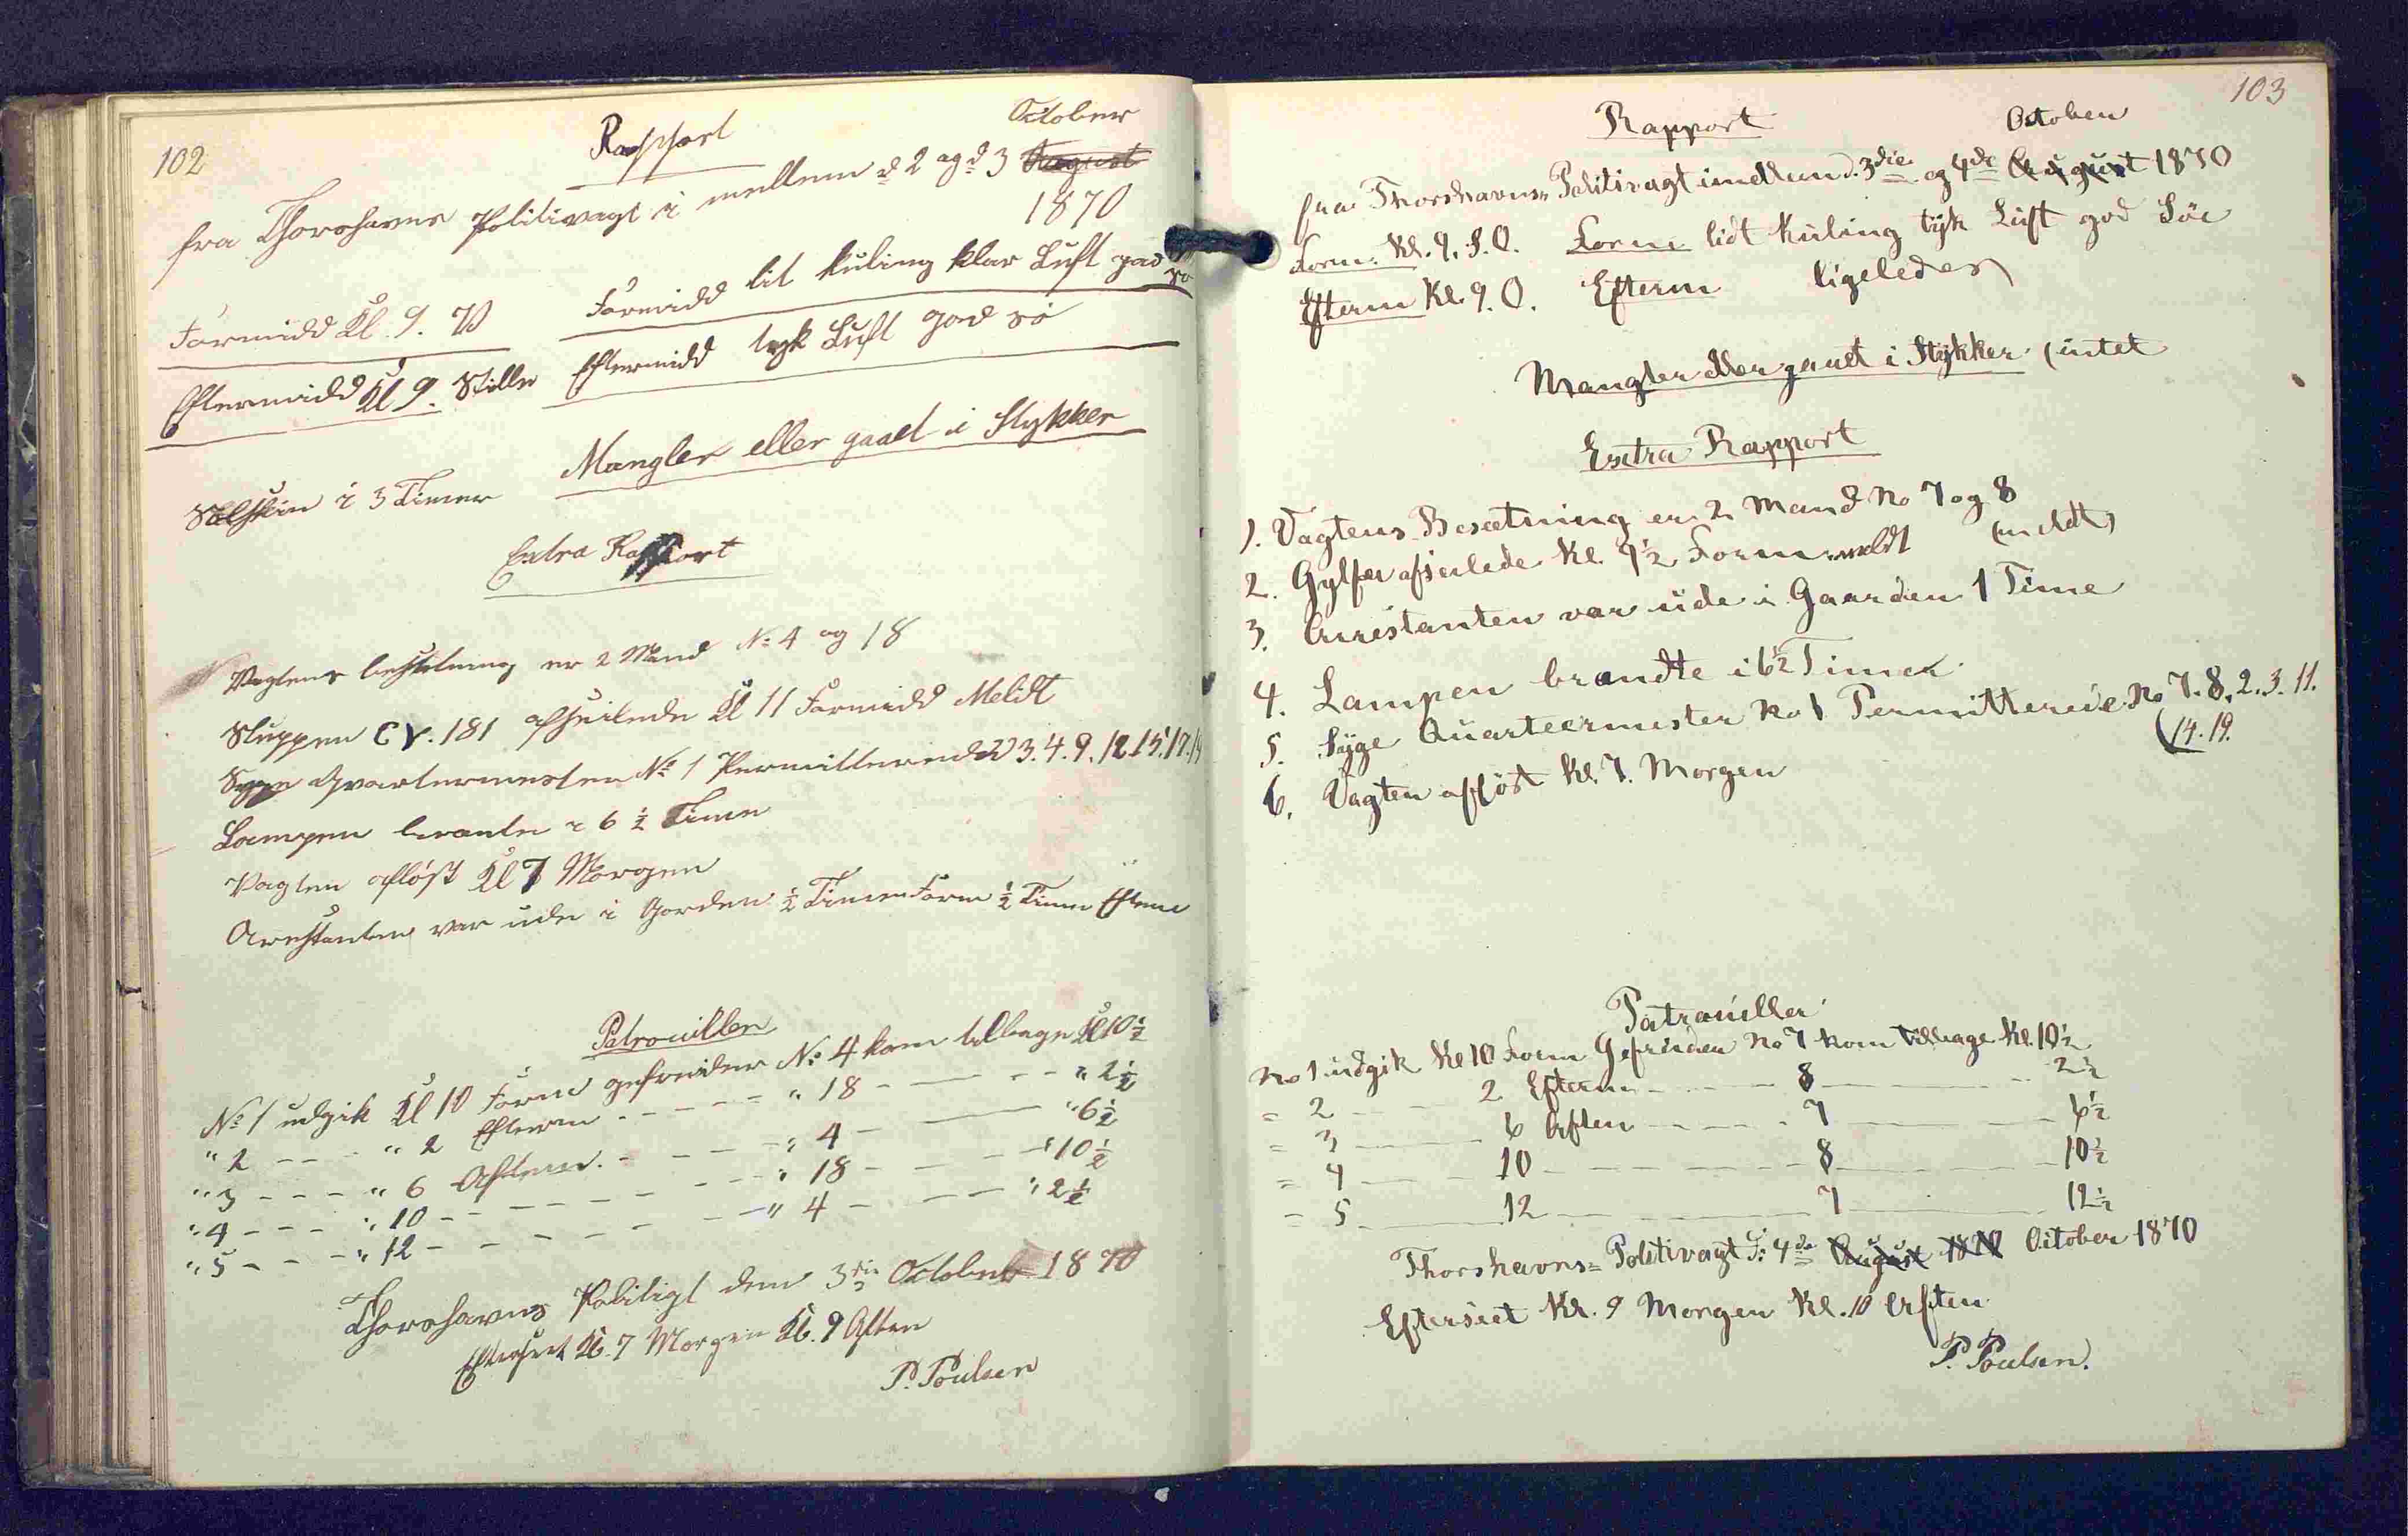 102
Rapport
October
fra Thorshavns Politivagt i mellem d 2 og d 3 August
1870
Formidd Kl. 9. V
Formidd lit kuling klar Luft god
sø
Eftermidd Kl 9. Stille
Eftermidd tyk Luft god sø
Mangler eller gaaet i Stykker
i 3 Timer
Extra Rapport
Vagtens besætning er 2 Mand No 4 og 18
Sluppen CV. 181 afseilede Kl 11 Formidd Meldt
Syge Qvartermester No 1 Permitterede 3. 4. 9. 12. 15. 17.
Lampen brænte i 6 ½ Time
Vagten afløst Kl 7 Morgen
Arestanten var ude i Gorden ½ Timen Form ½ Time Efterm
Patrouiller
No 1 udgik Kl 10 Form gefreider No 4 kom tilbage Kl 10 ½
" 2 - - - " 2 Efterm - - - - " 18 - - - " 2 ½
" 3 - - - " 6 Aften. - - - - " 4 - - " 6 ½
" 4 - - - " 10 - - - - - - " 18 - - - " 10 ½
" 5 - - - " 12 - - - - - - " 4 - - - " 2 ½
Thorshavns Politigt den 3die October 1870
Efterseet Kl. 7 Morgen Kl. 9 Aften
P. Poulsen
103
Rapport
October
fra Thorshavns= Politivagt imellem d. 3die og 4de August 1870
Form. Kl. 9. S. O. Form lidt Kuling tyk Luft god Söe
Efterm Kl. 9. O. Efterm ligeledes
Mangler eller gaaet i Stykker (intet
Extra Rapport
1. Vagtens Besætning er 2 Mand No 7 og 8
2. Gylfer afseilede Kl. 9½ Form. meldt (meldt)
3. Arrestanten var ude i Gaarden 1 Time
4. Lampen brændte i 6½ Timer
5. Syge Quarteermester No 1 Permitterede No 7. 8. 2. 3. 11.
(14. 19.
6. Vagten aflöst Kl. 7. Morgen
Patrouiller
No 1 udgik Kl 10 Form Gefreider No 7 kom tilbage Kl. 10½
= 2 - - - 2 Efterm - - - 8 - - - 2½
= 3 - - - 6 Aften - - - 7 - - - 6½
= 4 - - - 10 - - - 8 - - - 10½
= 5 - - - 12 - - - 7 - - - 12½
Thorshavns= Politivagt d: 4de August 1870 October 1870
Efterseet Kl. 9 Morgen Kl. 10 Aften
P. Poulsen.